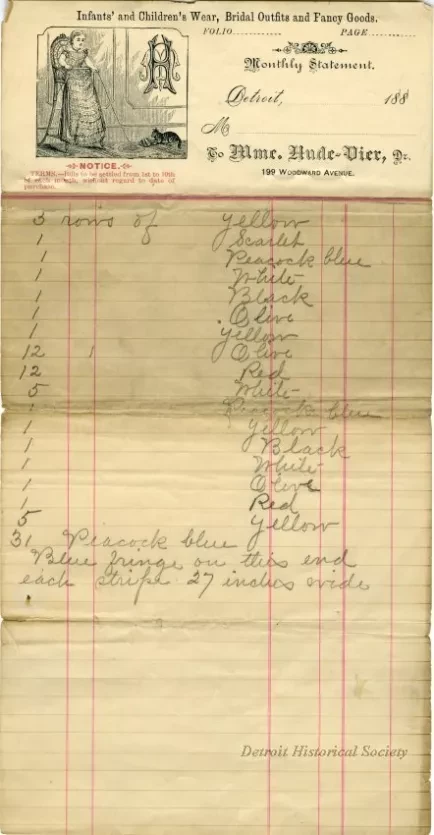 Infants' and Children's Wear, Bridal Outfits and Fancy Goods.
FOLIO............ PAGE............
Monthly Statement.
Detroit, 188
M
To Mme. Hude-Vier, Dr.
199 WOODWARD AVENUE.
NOTICE.
TERMS.—Bills to be settled from 1st to 10th
of each month, without regard to date of
purchase.
3 rows of yellow
1 Scarlet
1 Peacock blue
1 White
1 Black
1 Olive
1 yellow
12 1 Olive
12 Red
5 White
1 Peacock blue
1 yellow
1 Black
1 White
1 Olive
1 Red
5 yellow
31 Peacock blue
Blue fringe on this end
each stripe 27 inches wide
Detroit Historical Society